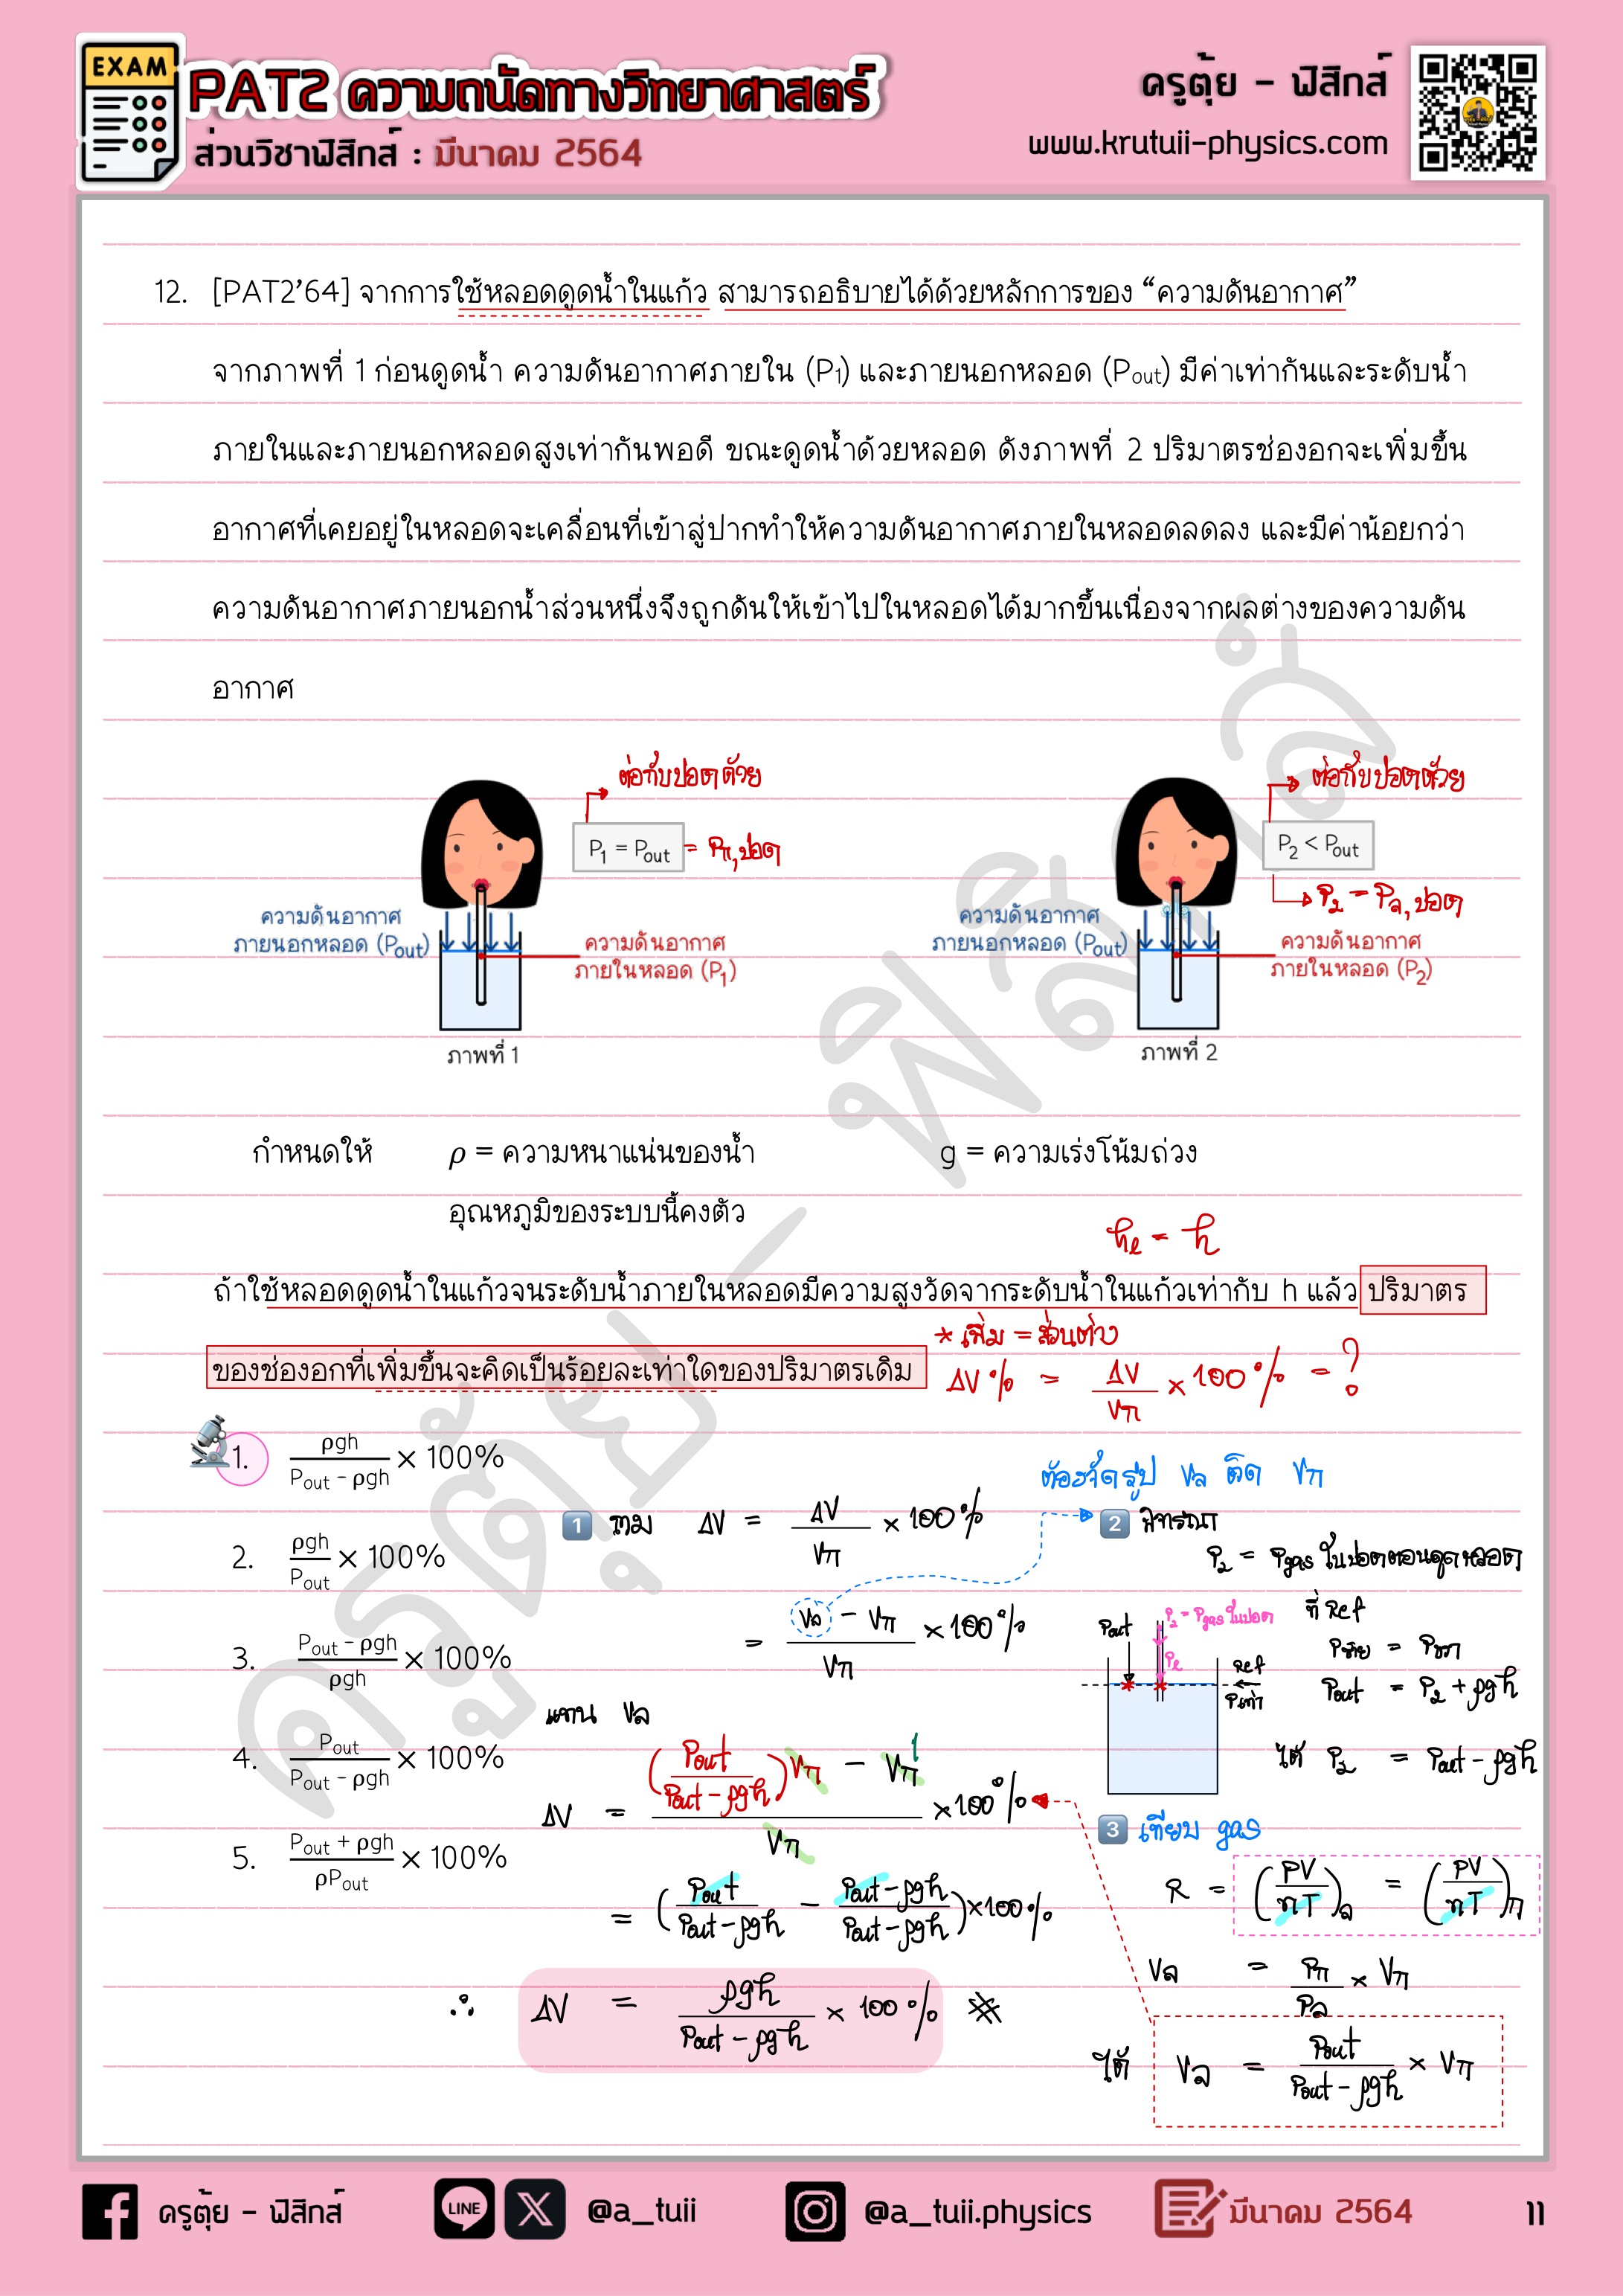 EXAM
PAT2 ความถนัดทางวิทยาศาสตร์
ส่วนวิชาฟิสิกส์ : มีนาคม 2564
ครูตุ้ย - ฟิสิกส์
www.krutuii-physics.com
12. [PAT2’64] จากการใช้หลอดดูดน้ำในแก้ว สามารถอธิบายได้ด้วยหลักการของ “ความดันอากาศ”
จากภาพที่ 1 ก่อนดูดน้ำ ความดันอากาศภายใน (P₁) และภายนอกหลอด (Pout) มีค่าเท่ากันและระดับน้ำ
ภายในและภายนอกหลอดสูงเท่ากันพอดี ขณะดูดน้ำด้วยหลอด ดังภาพที่ 2 ปริมาตรช่องอกจะเพิ่มขึ้น
อากาศที่เคยอยู่ในหลอดจะเคลื่อนที่เข้าสู่ปากทำให้ความดันอากาศภายในหลอดลดลง และมีค่าน้อยกว่า
ความดันอากาศภายนอกน้ำส่วนหนึ่งจึงถูกดันให้เข้าไปในหลอดได้มากขึ้นเนื่องจากผลต่างของความดัน
อากาศ
ต่อกับปอดด้วย
P₁ = Pout = Pก,ปอด
ความดันอากาศ
ภายนอกหลอด (Pout)
ความดันอากาศ
ภายในหลอด (P₁)
ภาพที่ 1
ต่อกับปอดด้วย
P₂ < Pout
P₂ = Pล,ปอด
ความดันอากาศ
ภายนอกหลอด (Pout)
ความดันอากาศ
ภายในหลอด (P₂)
ภาพที่ 2
กำหนดให้ ρ = ความหนาแน่นของน้ำ g = ความเร่งโน้มถ่วง
อุณหภูมิของระบบนี้คงตัว
hℓ = h
ถ้าใช้หลอดดูดน้ำในแก้วจนระดับน้ำภายในหลอดมีความสูงวัดจากระดับน้ำในแก้วเท่ากับ h แล้ว ปริมาตร
ของช่องอกที่เพิ่มขึ้นจะคิดเป็นร้อยละเท่าใดของปริมาตรเดิม
* เพิ่ม = ส่วนต่าง
ΔV% = ΔV/Vก × 100% = ?
1. ρgh/(Pout - ρgh) × 100%
2. ρgh/Pout × 100%
3. (Pout - ρgh)/ρgh × 100%
4. Pout/(Pout - ρgh) × 100%
5. (Pout + ρgh)/ρPout × 100%
ต้องจัดรูป Vล ติด Vก
1 ถาม ΔV = ΔV/Vก × 100%
= (Vล - Vก)/Vก × 100%
แทน Vล
ΔV = ((Pout/(Pout - ρgh))Vก - Vก 1)/Vก × 100%
= (Pout/(Pout - ρgh) - (Pout - ρgh)/(Pout - ρgh)) × 100%
∴ ΔV = ρgh/(Pout - ρgh) × 100% #
2 พิจารณา
P₂ = Pgas ในปอดตอนดูดหลอด
Pout
P₂ = Pgas ในปอด
Pℓ
Ref
Pเท่า
ที่ Ref
Pซ้าย = Pขวา
Pout = P₂ + ρgh
ได้ P₂ = Pout - ρgh
3 เทียบ gas
R = (PV/nT)ล = (PV/nT)ก
Vล = Pก/Pล × Vก
ได้ Vล = Pout/(Pout - ρgh) × Vก
ครูตุ้ย - ฟิสิกส์
LINE
X
@a_tuii
@a_tuii.physics
มีนาคม 2564
11